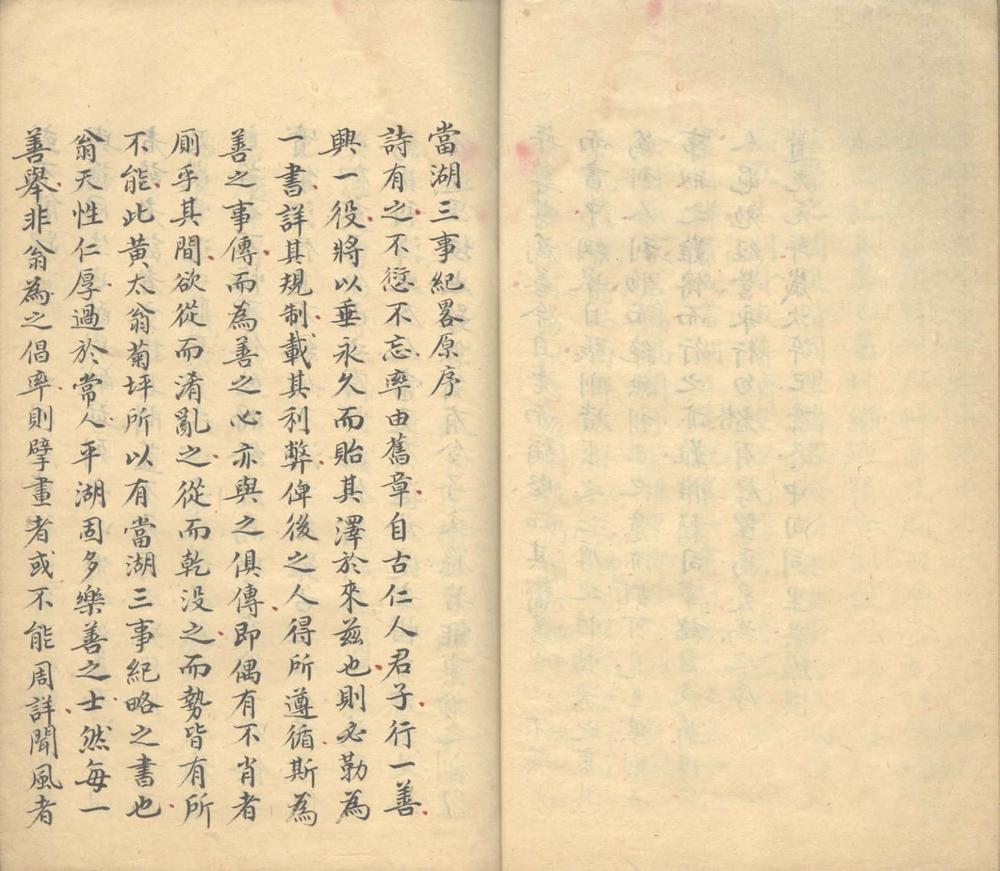 當湖三事紀畧原序
詩有之不愆不忘率由舊章自古仁人君子行一善
興一役將以垂永久而貽其澤於來茲也則必勒為
一書詳其規制載其利弊俾後之人得所遵循斯為
善之事傳而為善之心亦與之俱傳即偶有不肖者
厠乎其間欲從而淆亂之從而乾没之而勢皆有所
不能此黃太翁菊坪所以有當湖三事紀略之書也
翁天性仁厚過於常人平湖固多樂善之士然每一
善舉非翁為之倡率則擘畫者或不能周詳聞風者